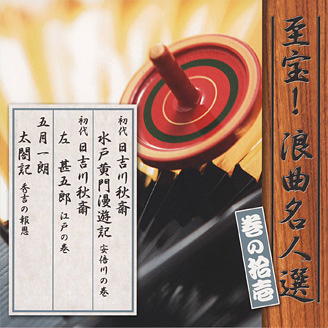 至宝!浪曲名人選
巻の拾壱
初代 日吉川秋斎
水戸黄門漫遊記 安倍川の巻
初代 日吉川秋斎
左 甚五郎 江戸の巻
五月一朗
太閤記 秀吉の報恩